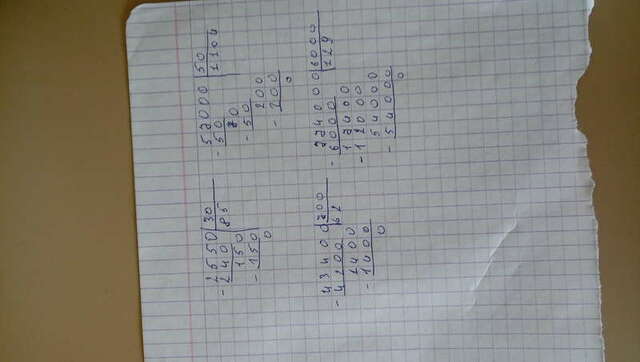 2550 30
- 240 85
150
- 150
0
52000 50
- 50 1104
- 50
200
- 200
0
43400 700
- 4200 62
1400
- 1400
0
774000 6000
- 6000 129
17400
- 12000
54000
- 54000
0